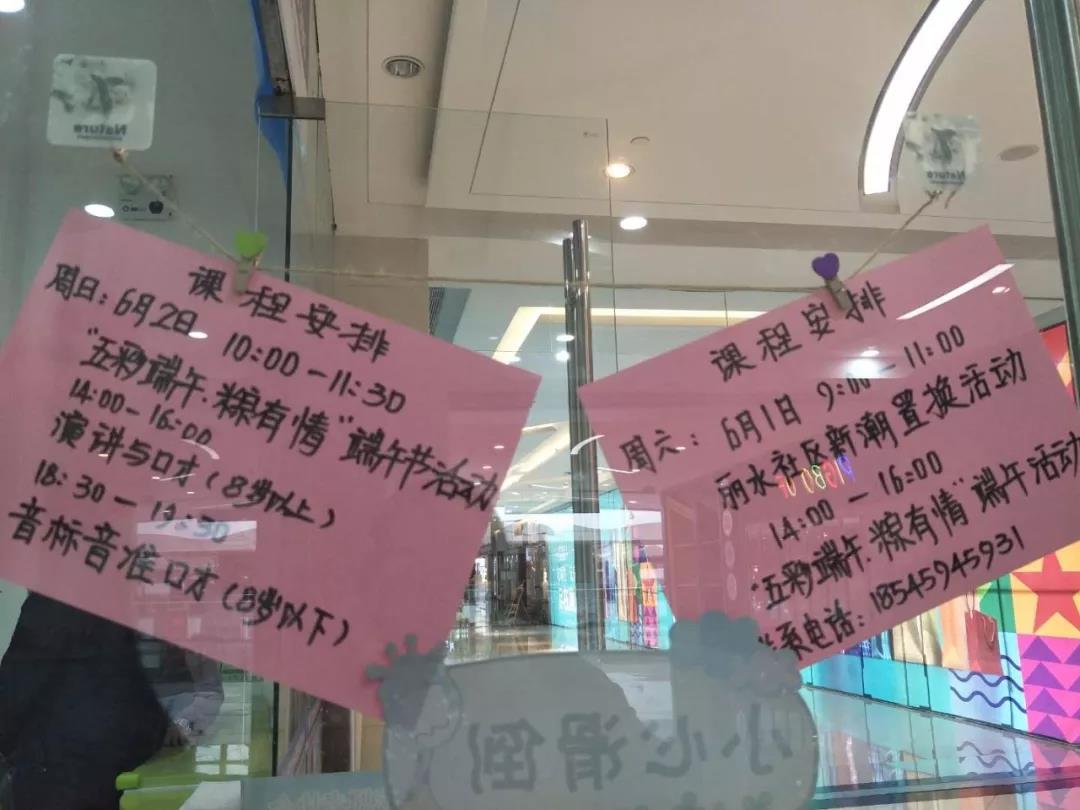 课程安排
周日：6月2日 10:00－11:30
"五彩端午.粽有情"端午节活动
14:00-16:00
演讲与口才（8岁以上）
18:30－19:30
音标音准口才（8岁以下）
课程安排
周六：6月1日 9:00－11:00
丽水社区新潮置换活动
14:00－16:00
"五彩端午.粽有情"端午活动
联系电话：18545945931
小心滑倒
Nature
Nature